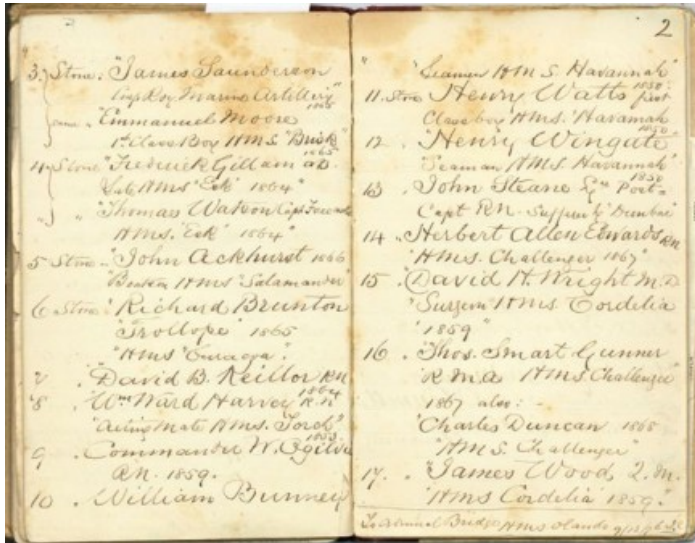 3. Stone. "James Saunderson
Corp Roy. Marine Artillery"
1865
same " "Emmanuel Moore
1st Class Boy HMS "Brisk"
1865
4. Stone "Frederick Gillam AB.
Late HMS "Esk" 1864"
" " "Thomas Watson Capt
HMS. "Esk" 1864"
5 Stone "John Ackhurst 1866
"Boatsn HMS "Salamander"
6 Stone "Richard Brunton
"Trollope" 1865
"HMS "Curacoa".
7 . "David B. Keillor RN
1864
"8 . "Wm Ward Harvey R.N
"Acting Mate HMS. Torch"
1853.
9 . Commander W. Ogilvie
RN. 1859.
10 . William Bunney
2
" Seaman HMS. Havannah"
1850.
11. Stone Henry Watts first
Class boy HMS. Havannah
1850
12 . "Henry Wingate
"Seaman HMS. Havannah"
1850
13 . John Steane Post=
Capt RN. "Dunbar"
14 . "Herbert Allen Edwards RN
"HMS. Challenger 1867"
15 . "David H. Wright M.D
"Surgeon HMS Cordelia
"1859"
16 . "Thos. Smart Gunner
R.M.A HMS Challenger"
1867 also: -
"Charles Duncan 1868
"HMS. Challenger"
17. . "James Wood Q.M.
"HMS Cordelia 1859."
To Admiral Bridge HMS Orlando